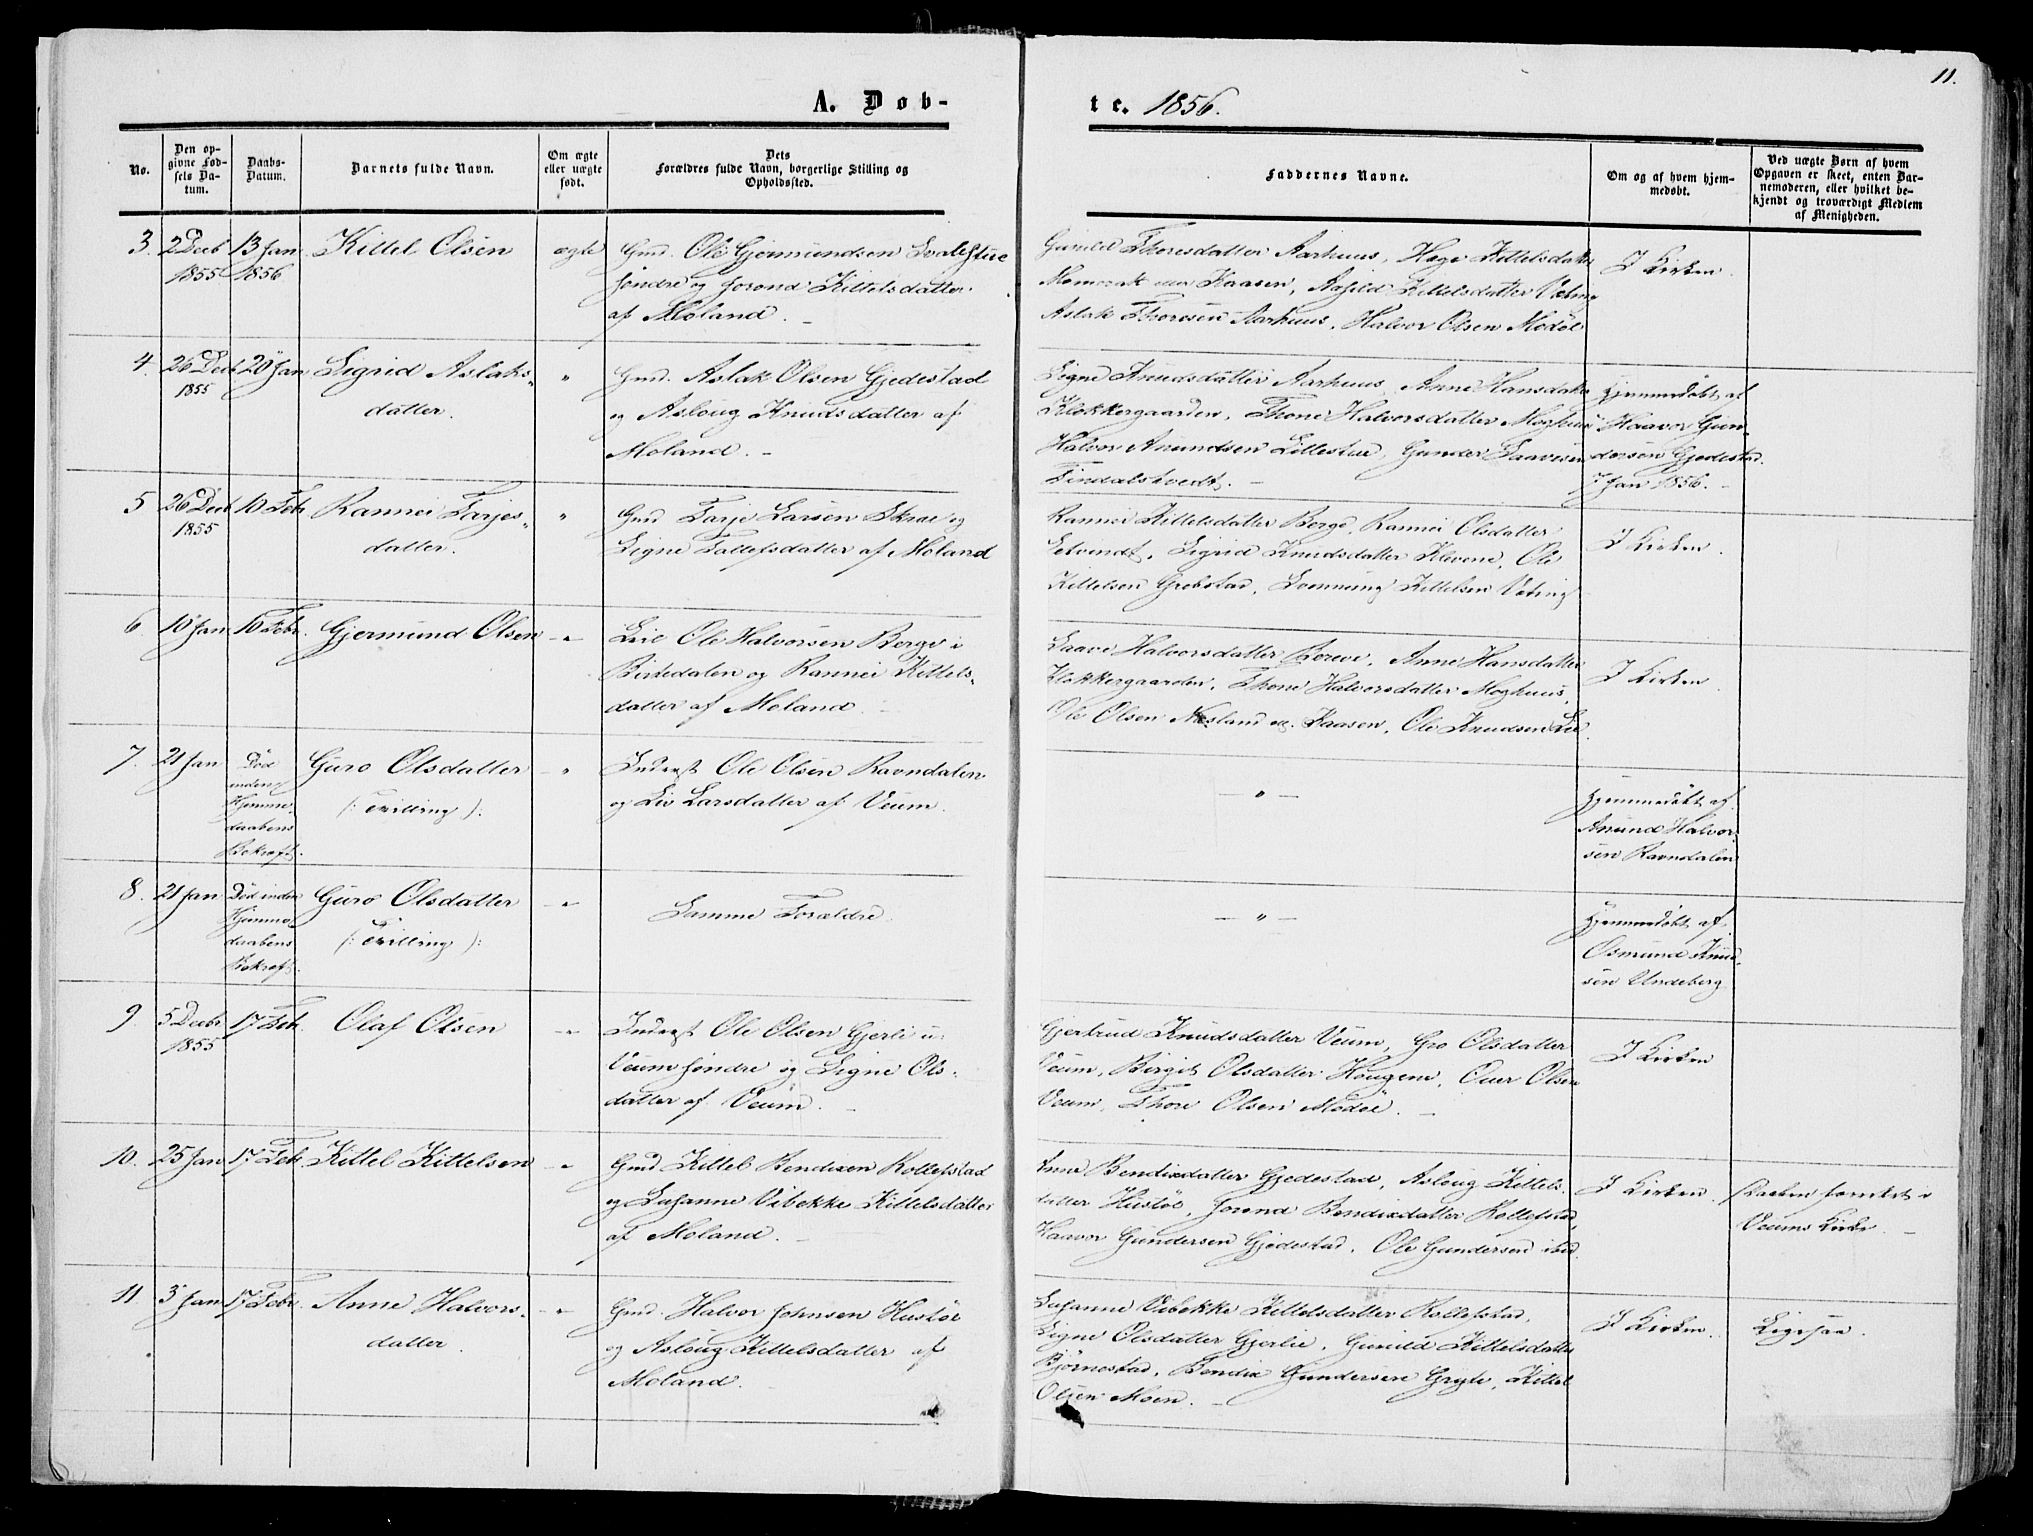 11.
A. Døb-
te. 1856.
No.
Den op-
givne Fød-
sels Da-
tum.
Daabs-
Datum.
Barnets fulde Navn.
Om ægte
eller uægte
født.
Dets
Forældres fulde Navn, borgerlige Stilling og
Opholdssted.
Faddernes Navne.
Om og af hvem hjem-
medøbt.
Ved uægte Børn af hvem
Opgaven er skeet, enten Bar-
nemoderen, eller hvilket be-
kjendt og troværdigt Medlem
af Menigheden.
3.
2 Decb
1855
13 Jan
1856
Kittel Olsen
ægte
Gmd. Ole Gjermundsen
søndre og Jorond Kittelsdatter
af Moland.
Gunild Thoresdatter Aarhuus, Hæge Kittelsdatter
Kaasen, Aasild Kittelsdatter
Aslak Thoresen Aarhuus, Halvor Olsen Modøe
I Kirken.
4.
26 Decb
1855
20 Jan
Sigrid Aslaks-
datter.
"
Gmd. Aslak Olsen Gjedestad
og Asloug Knudsdatter af
Moland.
Signe Knudsdatter Aarhuus, Anne Hansdatter
Klokkergaarden, Thone Halvorsdatter Moghuus
Halvor Anundsen Lillestue, Gunder Saavesen
Findalstvedt.
Hjemmedøbt af
Haavor Gun-
dersen Gjedestad
7 Jan 1856.
5
26 Decb
1855
10 Feb
Rannei Tarjes-
datter.
"
Gmd Tarje Larsen Skrae og
Signe Tallefsdatter af Moland
Rannei Kittelsdatter Berge, Rannei Olsdatter
Sigrid Knudsdatter Klevene, Ole
Kittelsen Grobstad, Kittelsen
I Kirken.
6.
10 Jan
10 Febr.
Gjermund Olsen
"
Leil Ole Halvorsen Berge i
Birtedalen og Rannei Kittels-
datter af Moland.
Saave Halvorsdatter Anne Hansdatter
Klokkergaarden, Thone Halvorsdatter Moghuus,
Ole Olsen Næsland Kaasen, Ole Knudsen Lie.
I Kirken
7.
21 Jan
Død
inden
Hjemme-
daabens
Bekræft.
Guro Olsdatter
(: Tvilling ):
"
Inderst Ole Olsen Ravndalen
og Liv Larsdatter af Veum.
— " —
Hjemmedøbt af
Anund Halvor-
sen Ravndalen
8.
21 Jan
Død inden
Hjemme
daabens
Bekræft.
Guro Olsdatter
(: Tvilling ):
"
Samme Forældre.
— " —
Hjemmedøbt af
Osmund Knud-
sen Undeberg
9
5 Decbr
1855
17 Feb.
Olaf Olsen
"
Inderst Ole Olsen Gjerli u.
Veum søndre og Signe Ols-
datter af Veum.
Gjertrud Knudsdatter Veum, Gro Olsdatter
Veum, Birgit Olsdatter Hougene, Olsen
Veum, Thore Olsen Modøe.
I Kirken
10.
25 Jan
17 Feb
Kittel Kittelsen
"
Gmd Kittel Bendixen Rollefstad
og Susanne Vibekke Kittelsdatter
af Moland.
Anne Bendixdatter Gjedestad, Asloug Kittels-
datter Hustøe, Jorond Bendixdatter Rollefstad,
Haavor Gundersen Gjedestad, Ole Gundersen ibid.
I Kirken.
Daaben forrettet i
Veums Kirke.
11
3 Jan
17 Febr.
Anne Halvors-
datter.
"
Gmd. Halvor Johnsen Hustøe
og Asloug Kittelsdatter af
Moland.
Susanne Vibekke Kittelsdatter Rollefstad,
Signe Olsdatter Gjerlie, Gunild Kittelsdatter
Bjørnestad, Bendix Gundersen Kittel
Olsen Moen.
I Kirken.
Ligesaa.